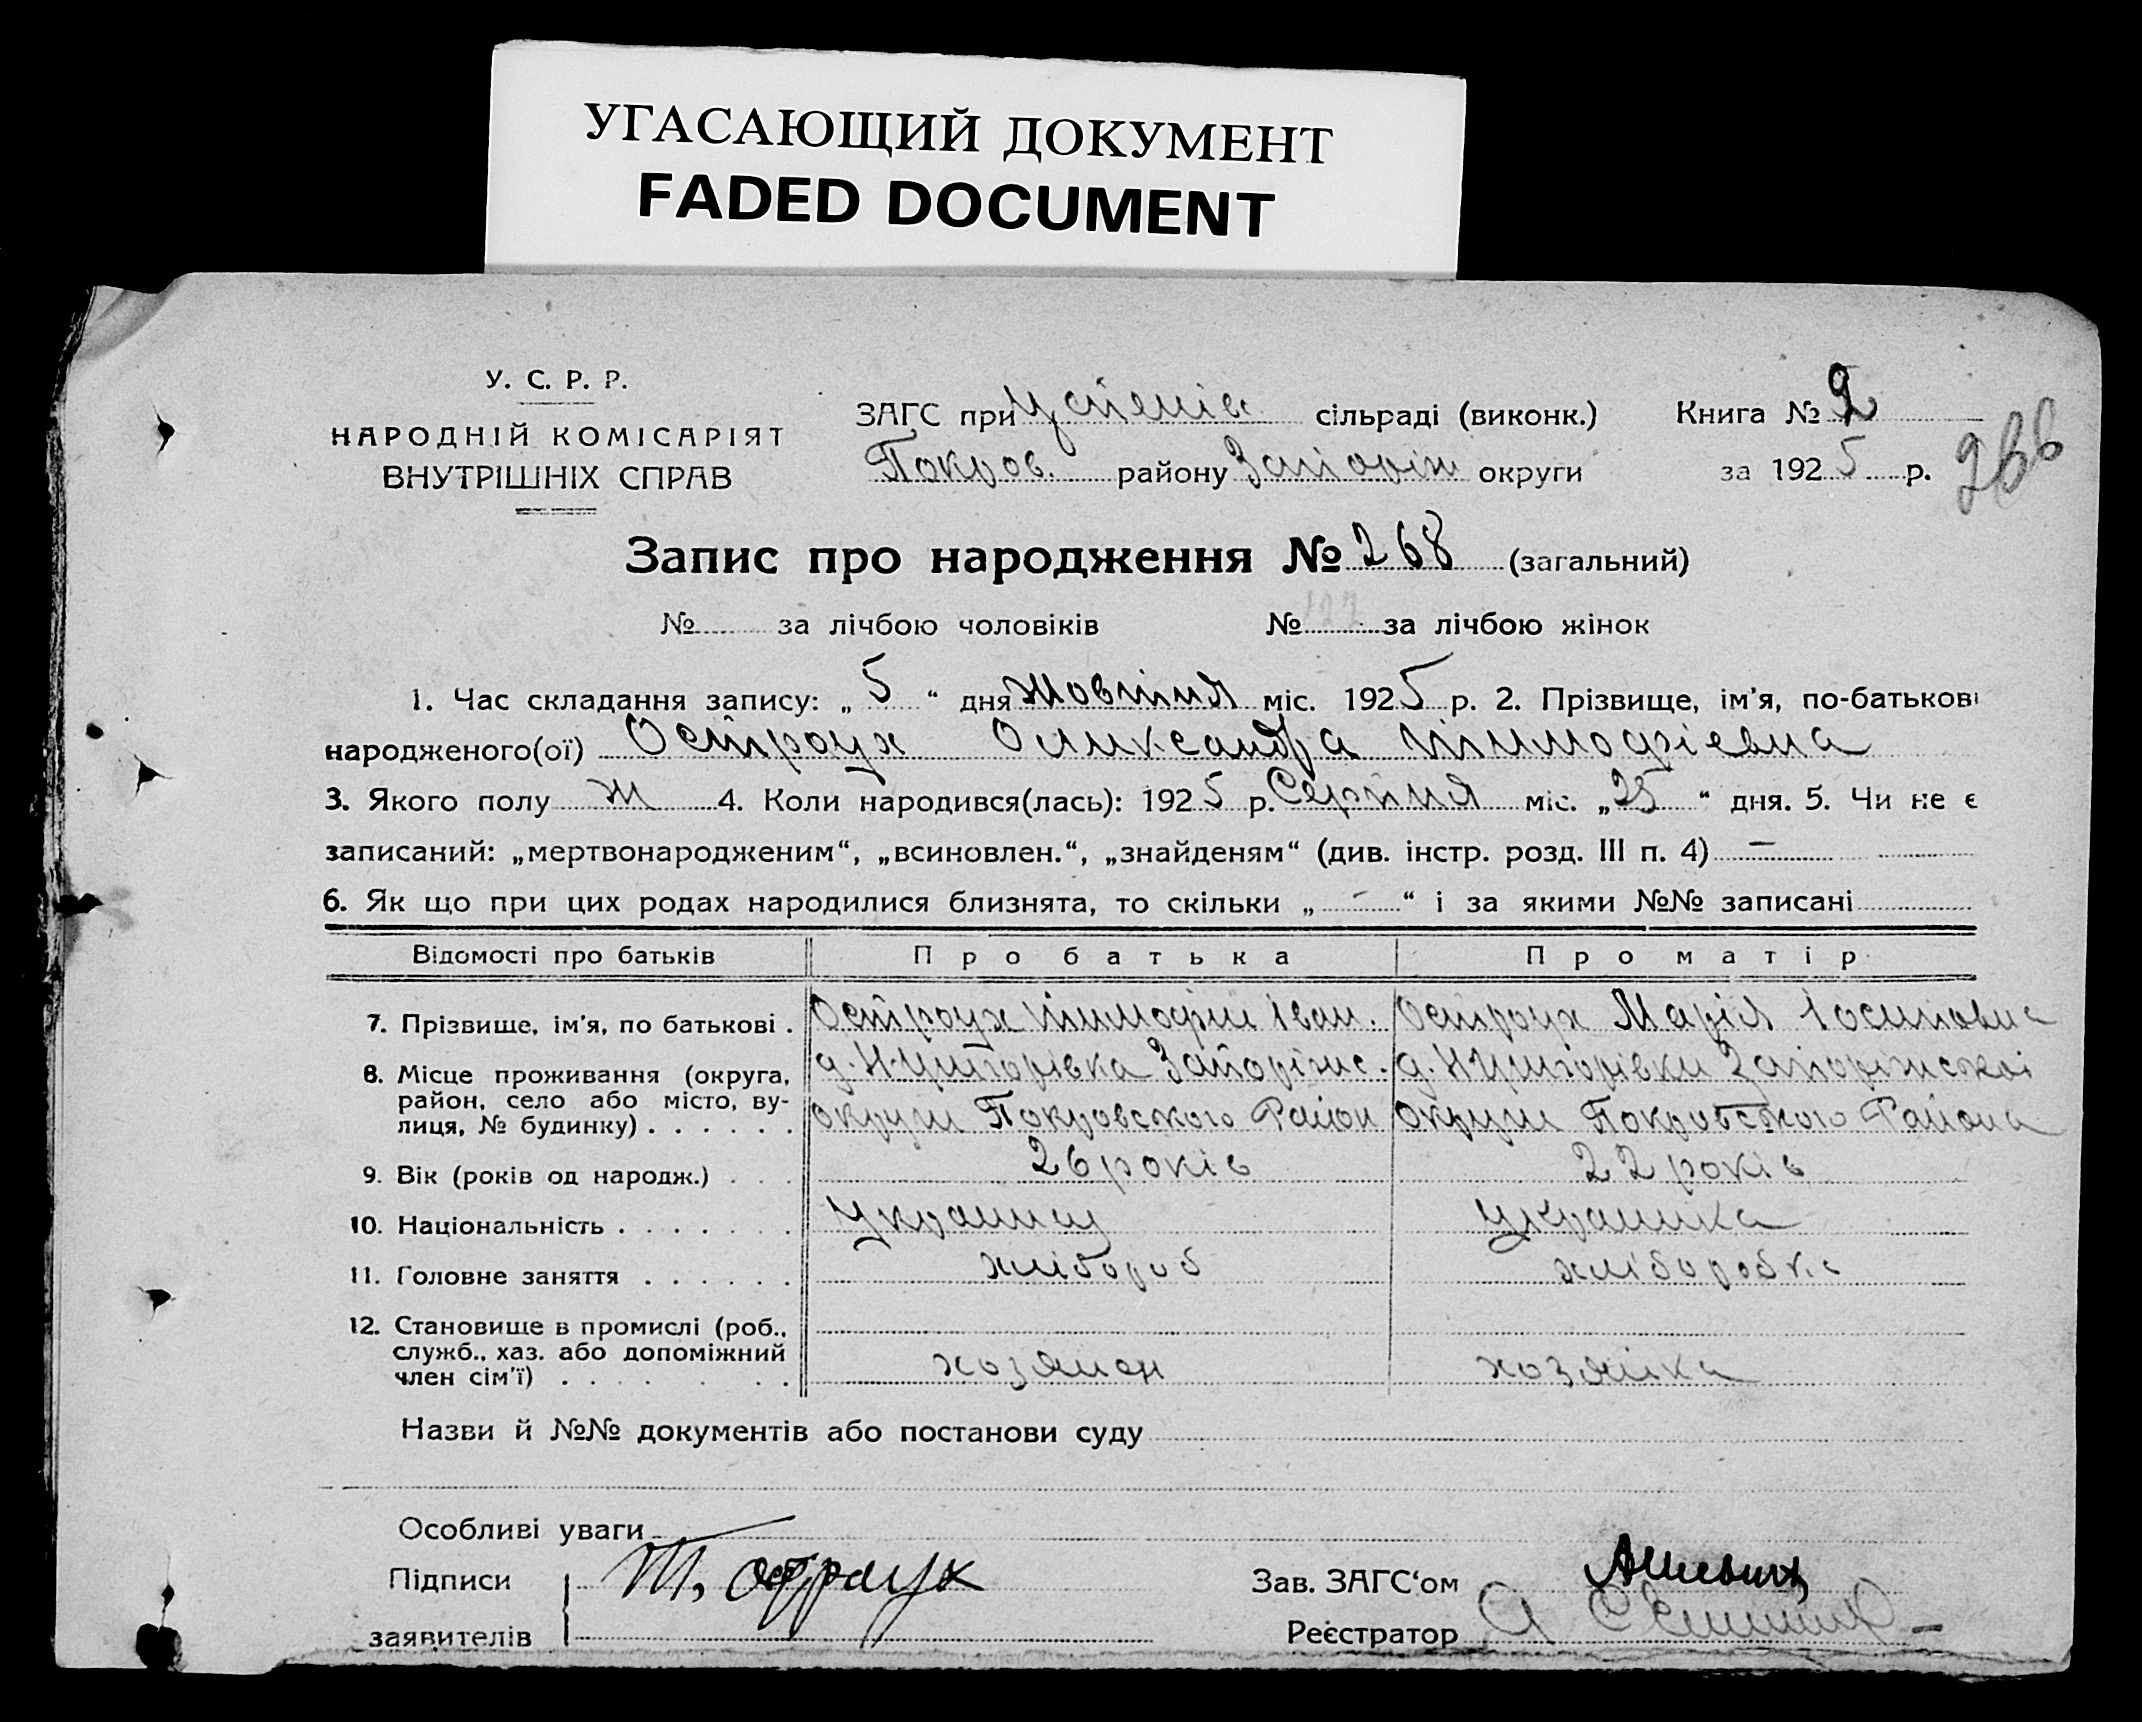 УГАСАЮЩИЙ ДОКУМЕНТ
FADED DOCUMENT
У. С. Р. Р.
НАРОДНІЙ КОМІСАРІЯТ
ВНУТРІШНІХ СПРАВ
ЗАГС при Успенів сільраді (виконк.)
Покров. району Запоріж округи
Книга № 2
за 1925 р.
266
Запис про народження № 268 (загальний)
№ за лічбою чоловіків № 127 за лічбою жінок
1. Час складання запису: „ 5 “ дня Жовтня міс. 1925 р. 2. Прізвище, ім'я, по-батькові
народженого(ої) Остроух Олександра Тимофіевна
3. Якого полу ж 4. Коли народився(лась): 1925 р. Серпня міс. „ 25 “ дня. 5. Чи не є
записаний: „мертвонародженим“, „всиновлен.“, „знайденям“ (див. інстр. розд. III п. 4) —
6. Як що при цих родах народилися близнята, то скільки „ - “ і за якими №№ записані
Відомості про батьків Про батька Про матір
7. Прізвище, ім'я, по батькові . Остроух Тимофій Іван. Остроух Марія Іосиповна
8. Місце проживання (округа, район, село або місто, вулиця, № будинку) . . . . . .
д. Н-Григорівка Запоріжс. д. Н Григорівки Запоріжської
округи Покровського Район округи Покровського Района
9. Вік (років од народж.) . . . 26 років 22 років
10. Національність . . . . . . . Українец Українка
11. Головне заняття . . . . . . хлібороб хліборобка
12. Становище в промислі (роб., служб., хаз. або допоміжний член сім'ї) . . . . . . .
хозяїн хозяйка
Назви й №№ документів або постанови суду
Особливі уваги
Підписи
заявителів
Т. Остроух
Зав. ЗАГС'ом
Реєстратор